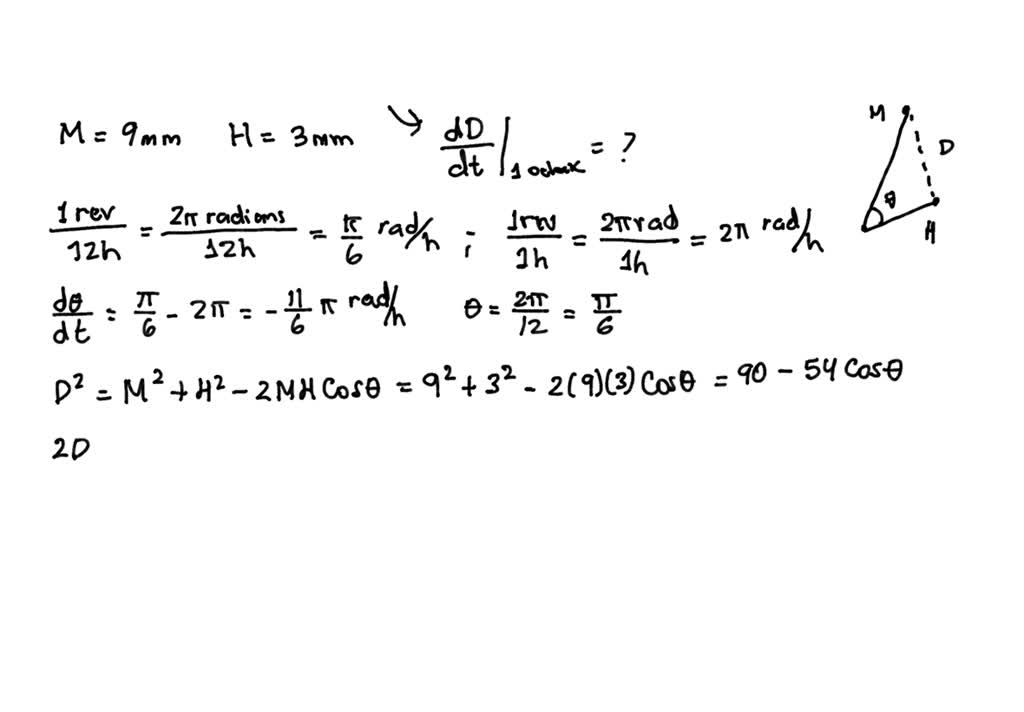 M = 9mm H = 3mm ↘ dD/dt |1 oclock = ? M D
1 rev/12h = 2π radians/12h = π/6 rad/h ; 1rev/1h = 2π rad/1h = 2π rad/h θ H
dθ/dt = π/6 - 2π = -11/6 π rad/h θ = 2π/12 = π/6
D² = M² + H² - 2MH Cosθ = 9² + 3² - 2(9)(3) Cosθ = 90 - 54 Cosθ
2D